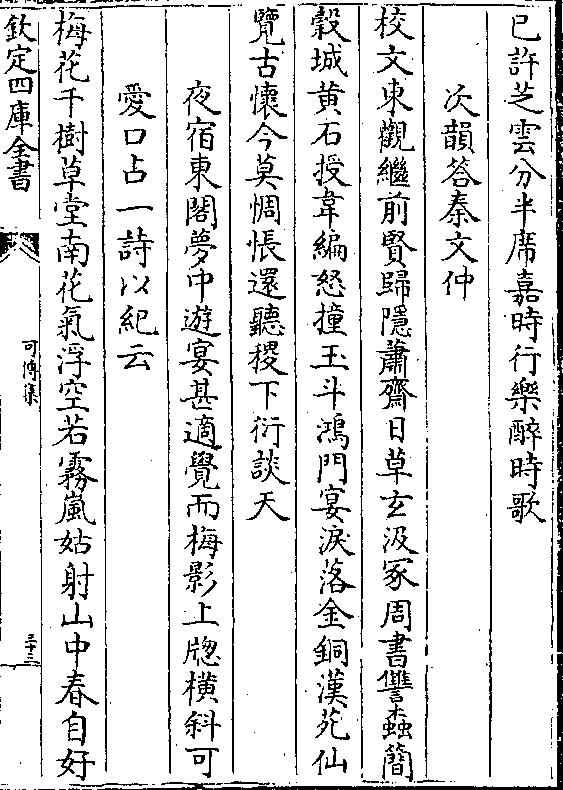 已許芝雲分半席嘉時行樂醉時歌
次韻答秦文仲
校文東觀繼前賢歸隱蕭齋日草玄汲冢周書讐蠧簡
榖城黃石授韋編怒撞玉斗鴻門宴淚落金銅漢苑仙
覽古懷今莫惆悵還聽稷下衍談天
夜宿東閣夢中遊宴甚適覺而梅影上牕橫斜可
愛口占一詩以紀云
梅花千樹草堂南花氣浮空若霧嵐姑射山中春自好
欽定四庫全書
可傳集
三十三